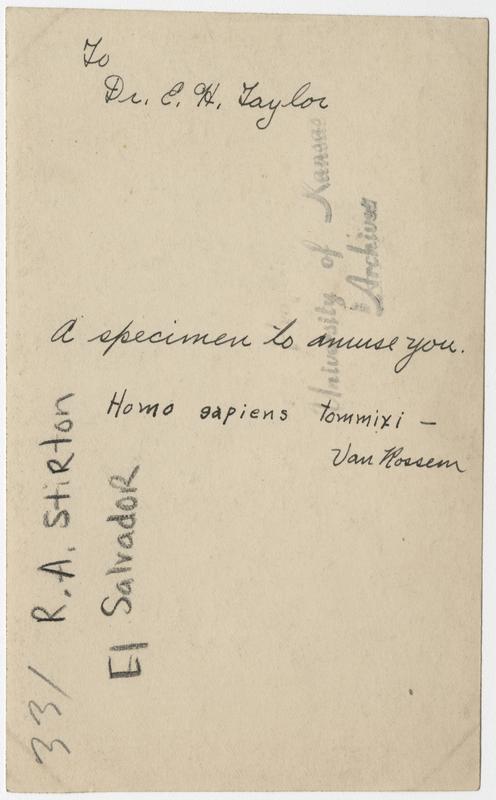 To
Dr. E. H. Taylor
University of Kansas
Archives
A specimen to amuse you.
Homo sapiens tommixi —
Van Rossem
R.A. Stirton
El Salvador
33/